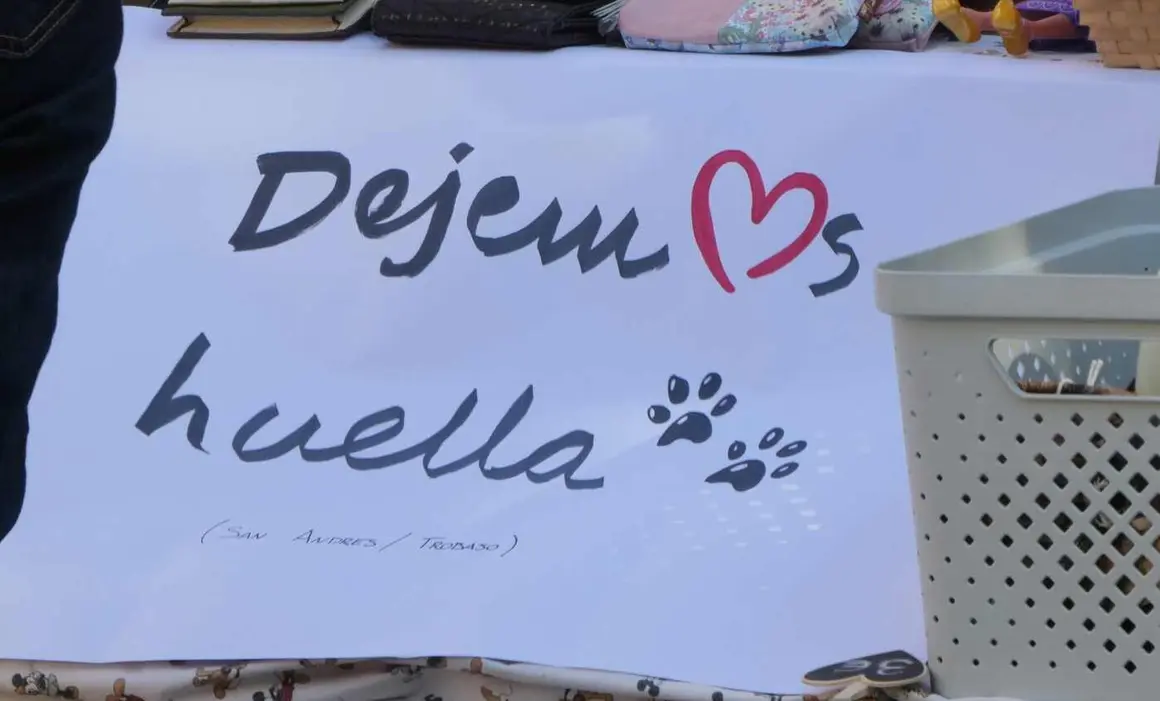 Dejem♥s
huella
(SAN ANDRES / TROBASO)
3€